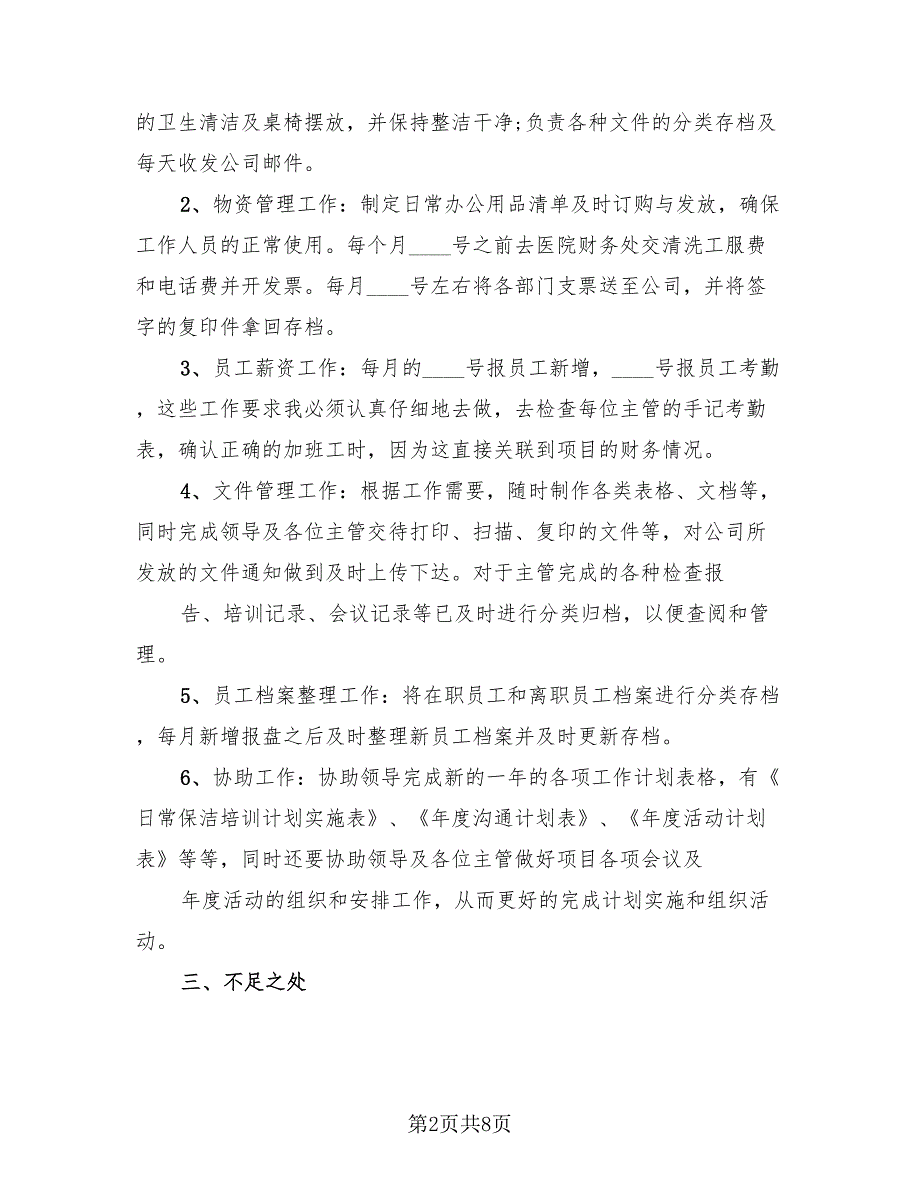 的卫生清洁及桌椅摆放，并保持整洁干净;负责各种文件的分类存档及
每天收发公司邮件。
2、物资管理工作：制定日常办公用品清单及时订购与发放，确保
工作人员的正常使用。每个月____号之前去医院财务处交清洗工服费
和电话费并开发票。每月____号左右将各部门支票送至公司，并将签
字的复印件拿回存档。
3、员工薪资工作：每月的____号报员工新增，____号报员工考勤
，这些工作要求我必须认真仔细地去做，去检查每位主管的手记考勤
表，确认正确的加班工时，因为这直接关联到项目的财务情况。
4、文件管理工作：根据工作需要，随时制作各类表格、文档等，
同时完成领导及各位主管交待打印、扫描、复印的文件等，对公司所
发放的文件通知做到及时上传下达。对于主管完成的各种检查报
告、培训记录、会议记录等已及时进行分类归档，以便查阅和管
理。
5、员工档案整理工作：将在职员工和离职员工档案进行分类存档
，每月新增报盘之后及时整理新员工档案并及时更新存档。
6、协助工作：协助领导完成新的一年的各项工作计划表格，有《
日常保洁培训计划实施表》、《年度沟通计划表》、《年度活动计划
表》等等，同时还要协助领导及各位主管做好项目各项会议及
年度活动的组织和安排工作，从而更好的完成计划实施和组织活
动。
三、不足之处
第2页共8页